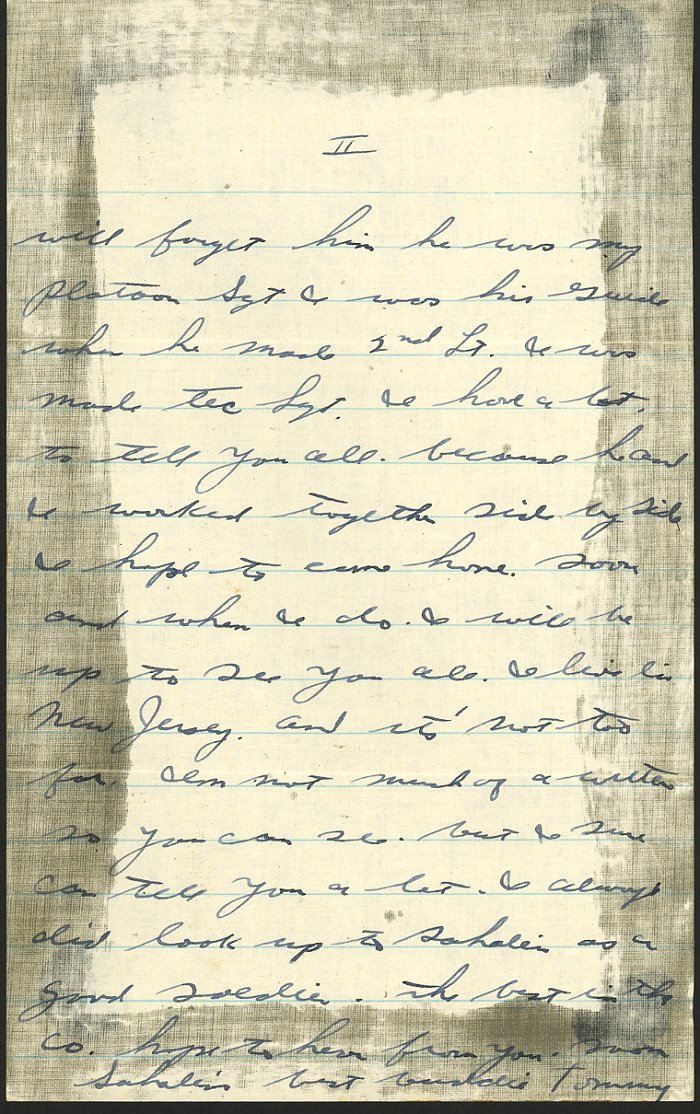 II
will forget him he was my
platoon Sgt & I was his Guide
when he made 2nd Lt. I was
made tec Sgt. I have a lot.
to tell you all. because he and
I worked together side by side
I hope to come home. soon
and when I do. I will be
up to see you all. I live in
New Jersey. and its' not too
far. I'm not much of a writer
so you can see. but I sure
can tell you a lot. I always
did look up to as a
good soldier. the best in the
co. hope to hear from you. soon
best buddie Tommy